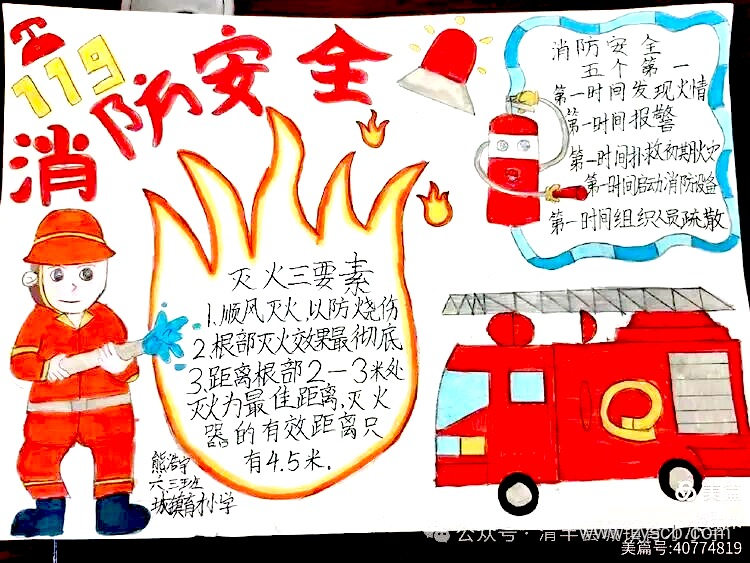 119
消防安全
消防安全
五个第一
第一时间发现火情
第一时间报警
第一时间扑救初期火灾
第一时间启动消防设备
第一时间组织人员疏散
灭火三要素
1.顺风灭火,以防烧伤
2.根部灭火效果最彻底
3.距离根部2-3米处
灭火为最佳距离,灭火
器的有效距离只
有4.5米.
熊浩宇
六三班
城镇育才小学
美篇
公众号·清丰县
美篇号:40774819